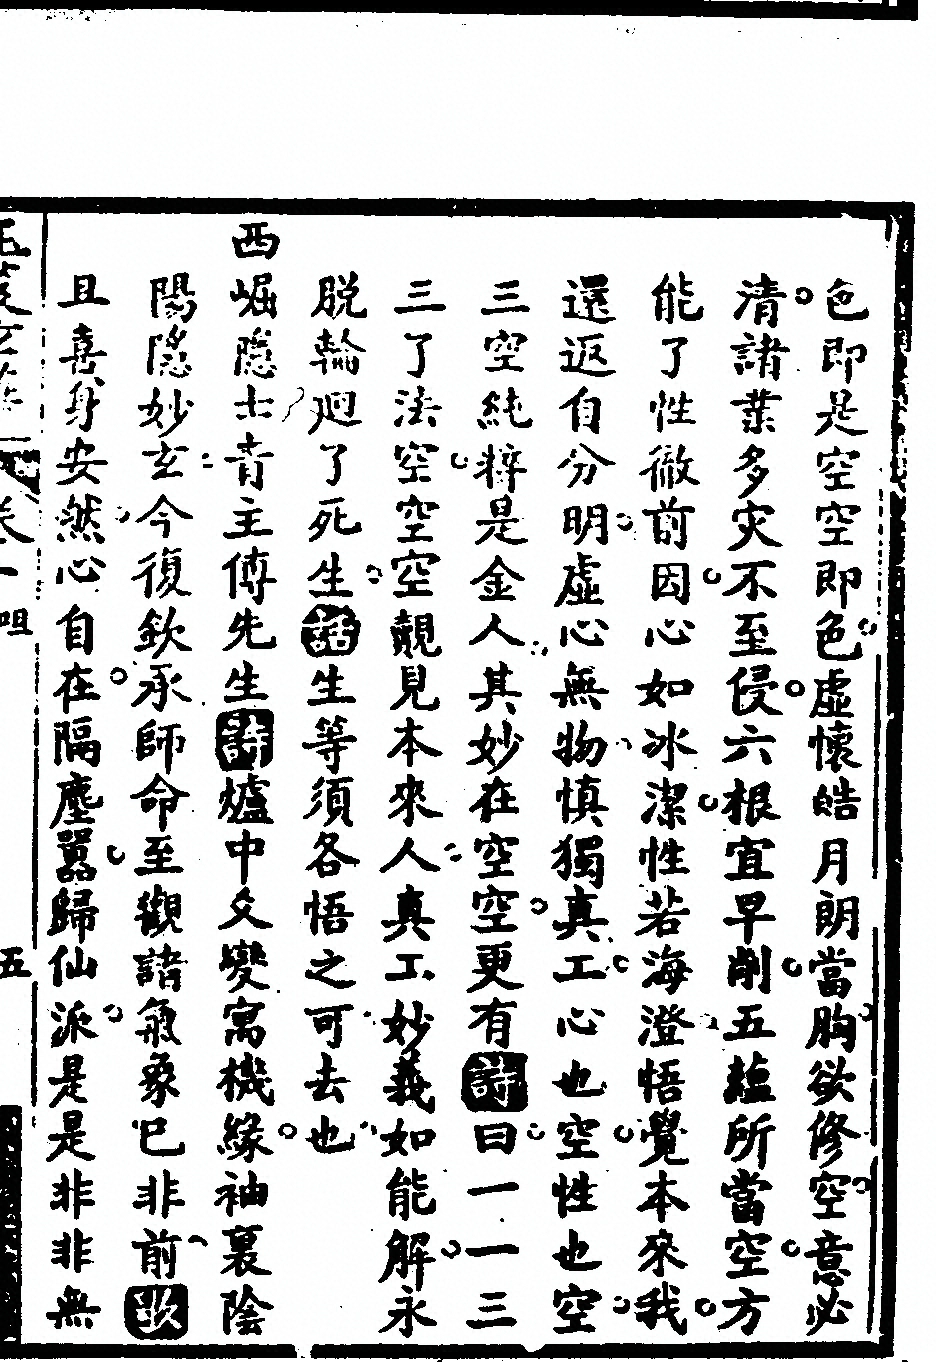 色即是空空即色虛懷皓月朗當胸欲修空意必
清諸業多灾不至侵六根宜早削五蘊所當空方
能了性徹前因心如冰潔性若海澄悟覺本來我
還返自分明虛心無物慎獨真工心也空性也空
三空純粹是金人其妙在空空更有詩曰一一三
三了法空空空覿見本來人真工妙義如能解永
脱輪迴了死生話生等須各悟之可去也
西崛隱士青主傅先生詩爐中爻變寓機緣袖裏陰
陽隱妙玄今復欽承師命至觀諸氣象已非前歌
且喜身安然心自在隔塵囂歸仙派是是非非無
卷一 咀
五